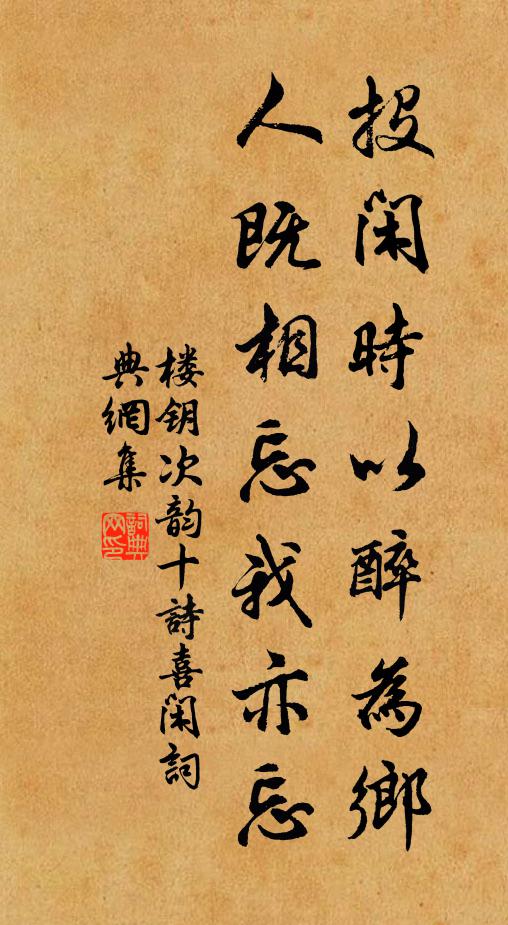 投闲時以醉為鄉
人既相忘我亦忘
楼钥次韵十詩喜闲詞
典網集
詞典网印